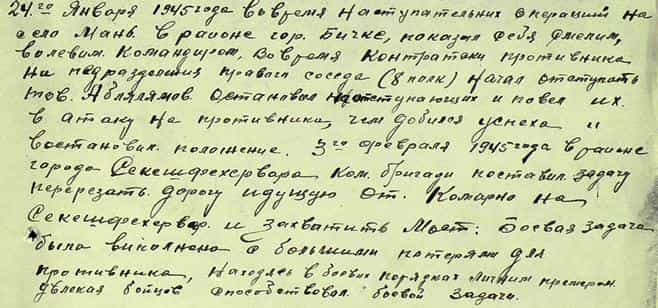 24го Января 1945 года во время наступательних операций на
село Мань в районе гор. Бичке, показал себя смелим,
волевим. Командиром, во время контратаки противника
на подразделения правого соседа (8 полк) начал отступать
тов. Аблялимов остановил отступающих и повел их.
в атаку на противника, чем добился успеха и
востановил положение. 3го февраля 1945 года в районе
города Секешфехервара Ком. бригади поставил задачу
перерезать. дорогу идущую от. Комарно на
Секешфехервар. и захватить Мост: Боевая задача
была виполнена с большими потерями для
противника, Находясь в боевих порядках личним примером.
увлекая бойцов способствовал. боевой задачи.